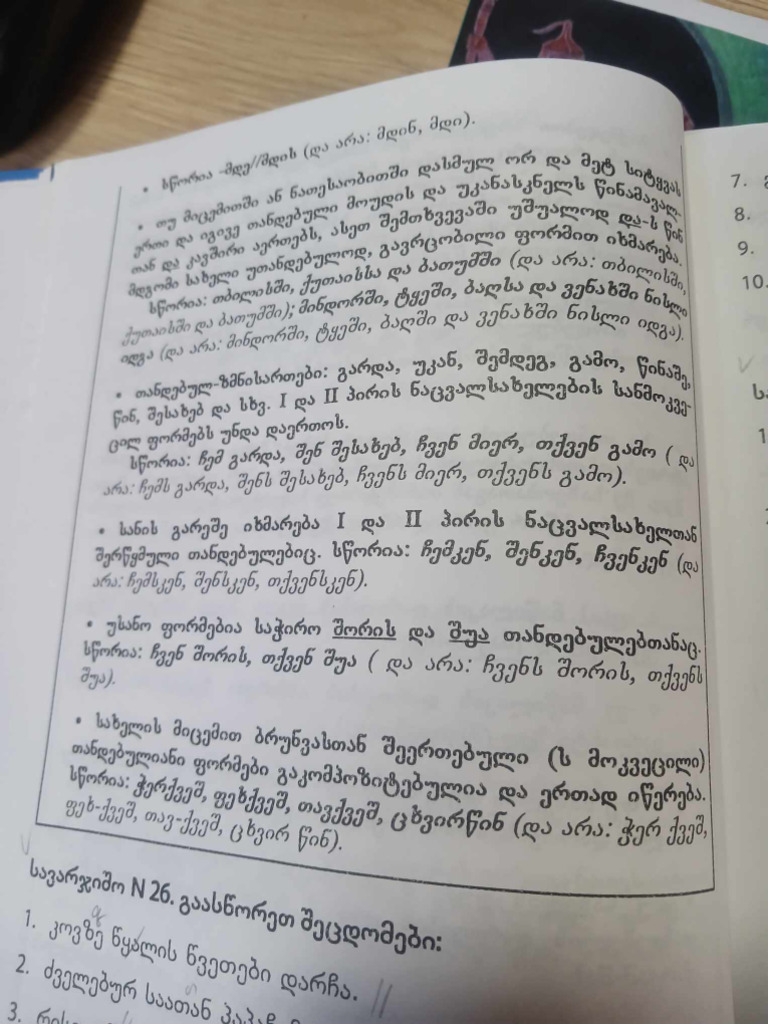 • სწორია -მდე//მდის (და არა: მდინ, მდი).
• თუ მიცემითში ან ნათესაობითში დასმულ ორ და მეტ სიტყვას
ერთი და იგივე თანდებული მოუდის და უკანასკნელს წინამავალ-
თან და კავშირი აერთებს, ასეთ შემთხვევაში უშუალოდ და-ს წინ
მდგომი სახელი უთანდებულოდ, გავრცობილი ფორმით იხმარება.
სწორია: თბილისში, ქუთაისსა და ბათუმში (და არა: თბილისში,
ქუთაისში და ბათუმში); მინდორში, ტყეში, ბაღსა და ვენახში ნისლი
იდგა (და არა: მინდორში, ტყეში, ბაღში და ვენახში ნისლი იდგა).
• თანდებულ-ზმნისართები: გარდა, უკან, შემდეგ, გამო, წინაშე,
წინ, შესახებ და სხვ. I და II პირის ნაცვალსახელების სანმოკვე-
ცილ ფორმებს უნდა დაერთოს.
სწორია: ჩემ გარდა, შენ შესახებ, ჩვენ მიერ, თქვენ გამო ( და
არა: ჩემს გარდა, შენს შესახებ, ჩვენს მიერ, თქვენს გამო).
• სანის გარეშე იხმარება I და II პირის ნაცვალსახელთან
შერწყმული თანდებულებიც. სწორია: ჩემკენ, შენკენ, ჩვენკენ (და
არა: ჩემსკენ, შენსკენ, თქვენსკენ).
• უსანო ფორმებია საჭირო შორის და შუა თანდებულებთანაც.
სწორია: ჩვენ შორის, თქვენ შუა ( და არა: ჩვენს შორის, თქვენს
შუა).
• სახელის მიცემით ბრუნვასთან შეერთებული (ს მოკვეცილი)
თანდებულიანი ფორმები გაკომპოზიტებულია და ერთად იწერება.
სწორია: ჭერქვეშ, ფეხქვეშ, თავქვეშ, ცხვირწინ (და არა: ჭერ ქვეშ,
ფეხ-ქვეშ, თავ-ქვეშ, ცხვირ წინ).
სავარჯიშო N 26. გაასწორეთ შეცდომები:
1. კოვზე წყალის წვეთები დარჩა.
2. ძველებურ საათან
3.
7.
8.
9.
10.
1